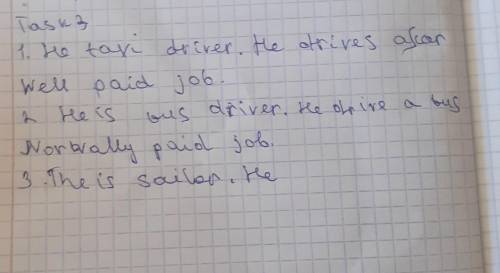 Task 3
1. He taxi driver. He drives a car
Well paid job.
2 He is bus driver. He drive a bus
Norvally paid job.
3. The is sailor. He